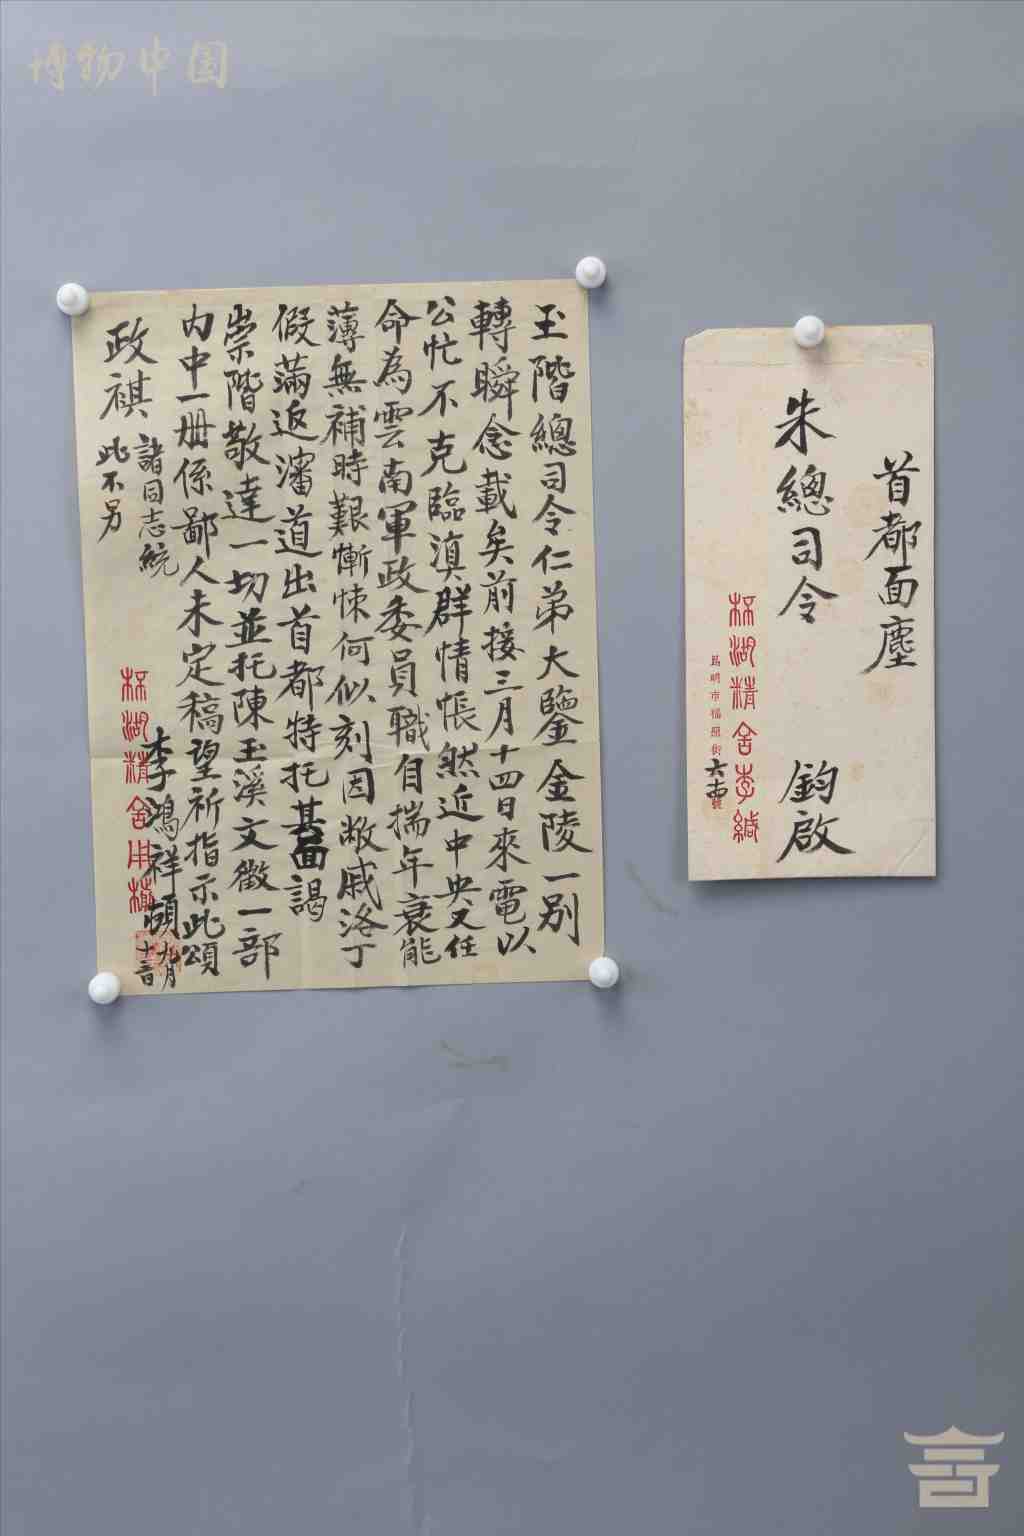 博物中国
玉階總司令仁弟大鑒金陵一别
轉瞬念載矣前接三月十四日來電以
公忙不克臨滇群情悵然近中央又任
命為雲南軍政委員職自揣年衰能
薄無補時艱慚悚何似刻因敝戚洛丁
假滿返瀋道出首都特托其面謁
崇階敬達一切並托陳玉溪文徵一部
内中一册係鄙人未定稿望祈指示此頌
政祺
諸同志統
此不另
李鴻祥頓
九月
十二日
梇湖精舍用箋
首都面塵
朱總司令 鈞啟
梇湖精舍李緘
昆明市福照街六十號